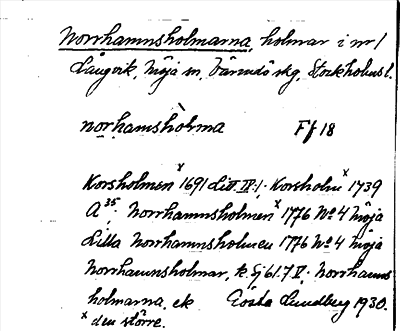 Norrhamnsholmarna, holmar i nr 1
Långvik, Möja sn, Värmdö skg, Stockholms l.
norhamshòlma Ff 18
Korsholmen ˣ 1691 Litt. IV:1; Korsholm ˣ 1739
A 35; Norrhamnsholmen ˣ 1776 No 4 Möja
Lilla Norrhamnsholmen 1776 No 4 Möja
Norrhamnsholmar, k. Sj 61.7 V; Norrhamns
holmarna, ek Gösta Lundberg 1930.
ˣ den större.